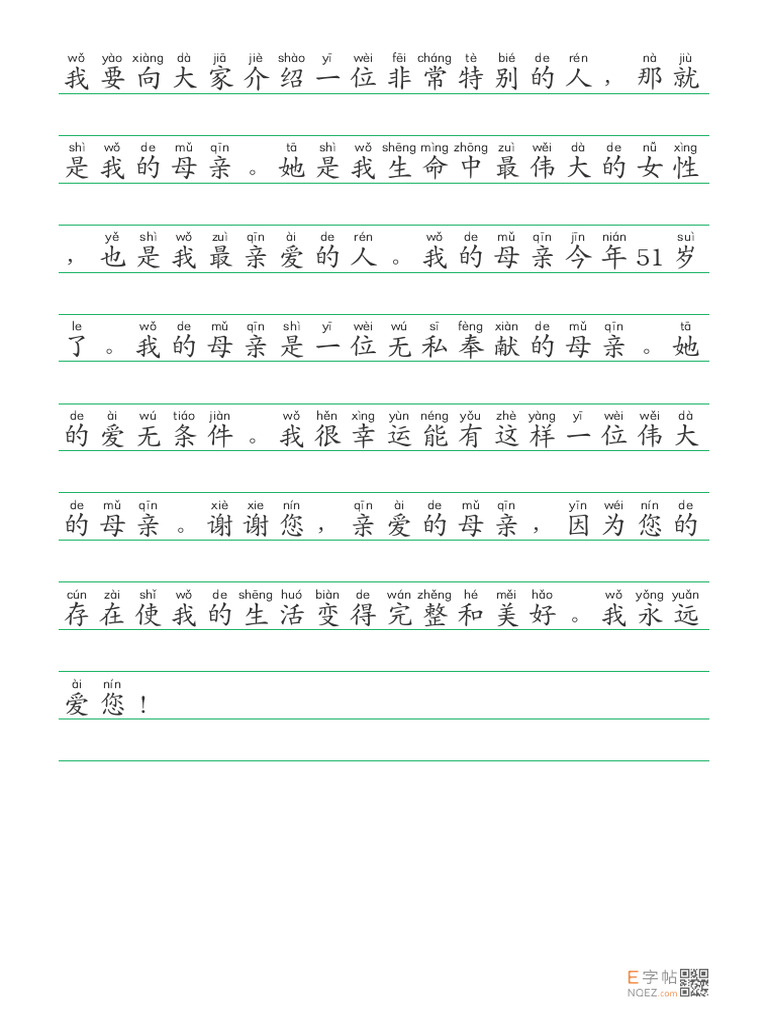 wǒ yào xiàng dà jiā jiè shào yī wèi fēi cháng tè bié de rén nà jiù
我要向大家介绍一位非常特别的人，那就
shì wǒ de mǔ qīn tā shì wǒ shēng mìng zhōng zuì wěi dà de nǚ xìng
是我的母亲。她是我生命中最伟大的女性
yě shì wǒ zuì qīn ài de rén wǒ de mǔ qīn jīn nián suì
，也是我最亲爱的人。我的母亲今年51岁
le wǒ de mǔ qīn shì yī wèi wú sī fèng xiàn de mǔ qīn tā
了。我的母亲是一位无私奉献的母亲。她
de ài wú tiáo jiàn wǒ hěn xìng yùn néng yǒu zhè yàng yī wèi wěi dà
的爱无条件。我很幸运能有这样一位伟大
de mǔ qīn xiè xie nín qīn ài de mǔ qīn yīn wéi nín de
的母亲。谢谢您，亲爱的母亲，因为您的
cún zài shǐ wǒ de shēng huó biàn de wán zhěng hé měi hǎo wǒ yǒng yuǎn
存在使我的生活变得完整和美好。我永远
ài nín
爱您！
E字帖
NQEZ.com